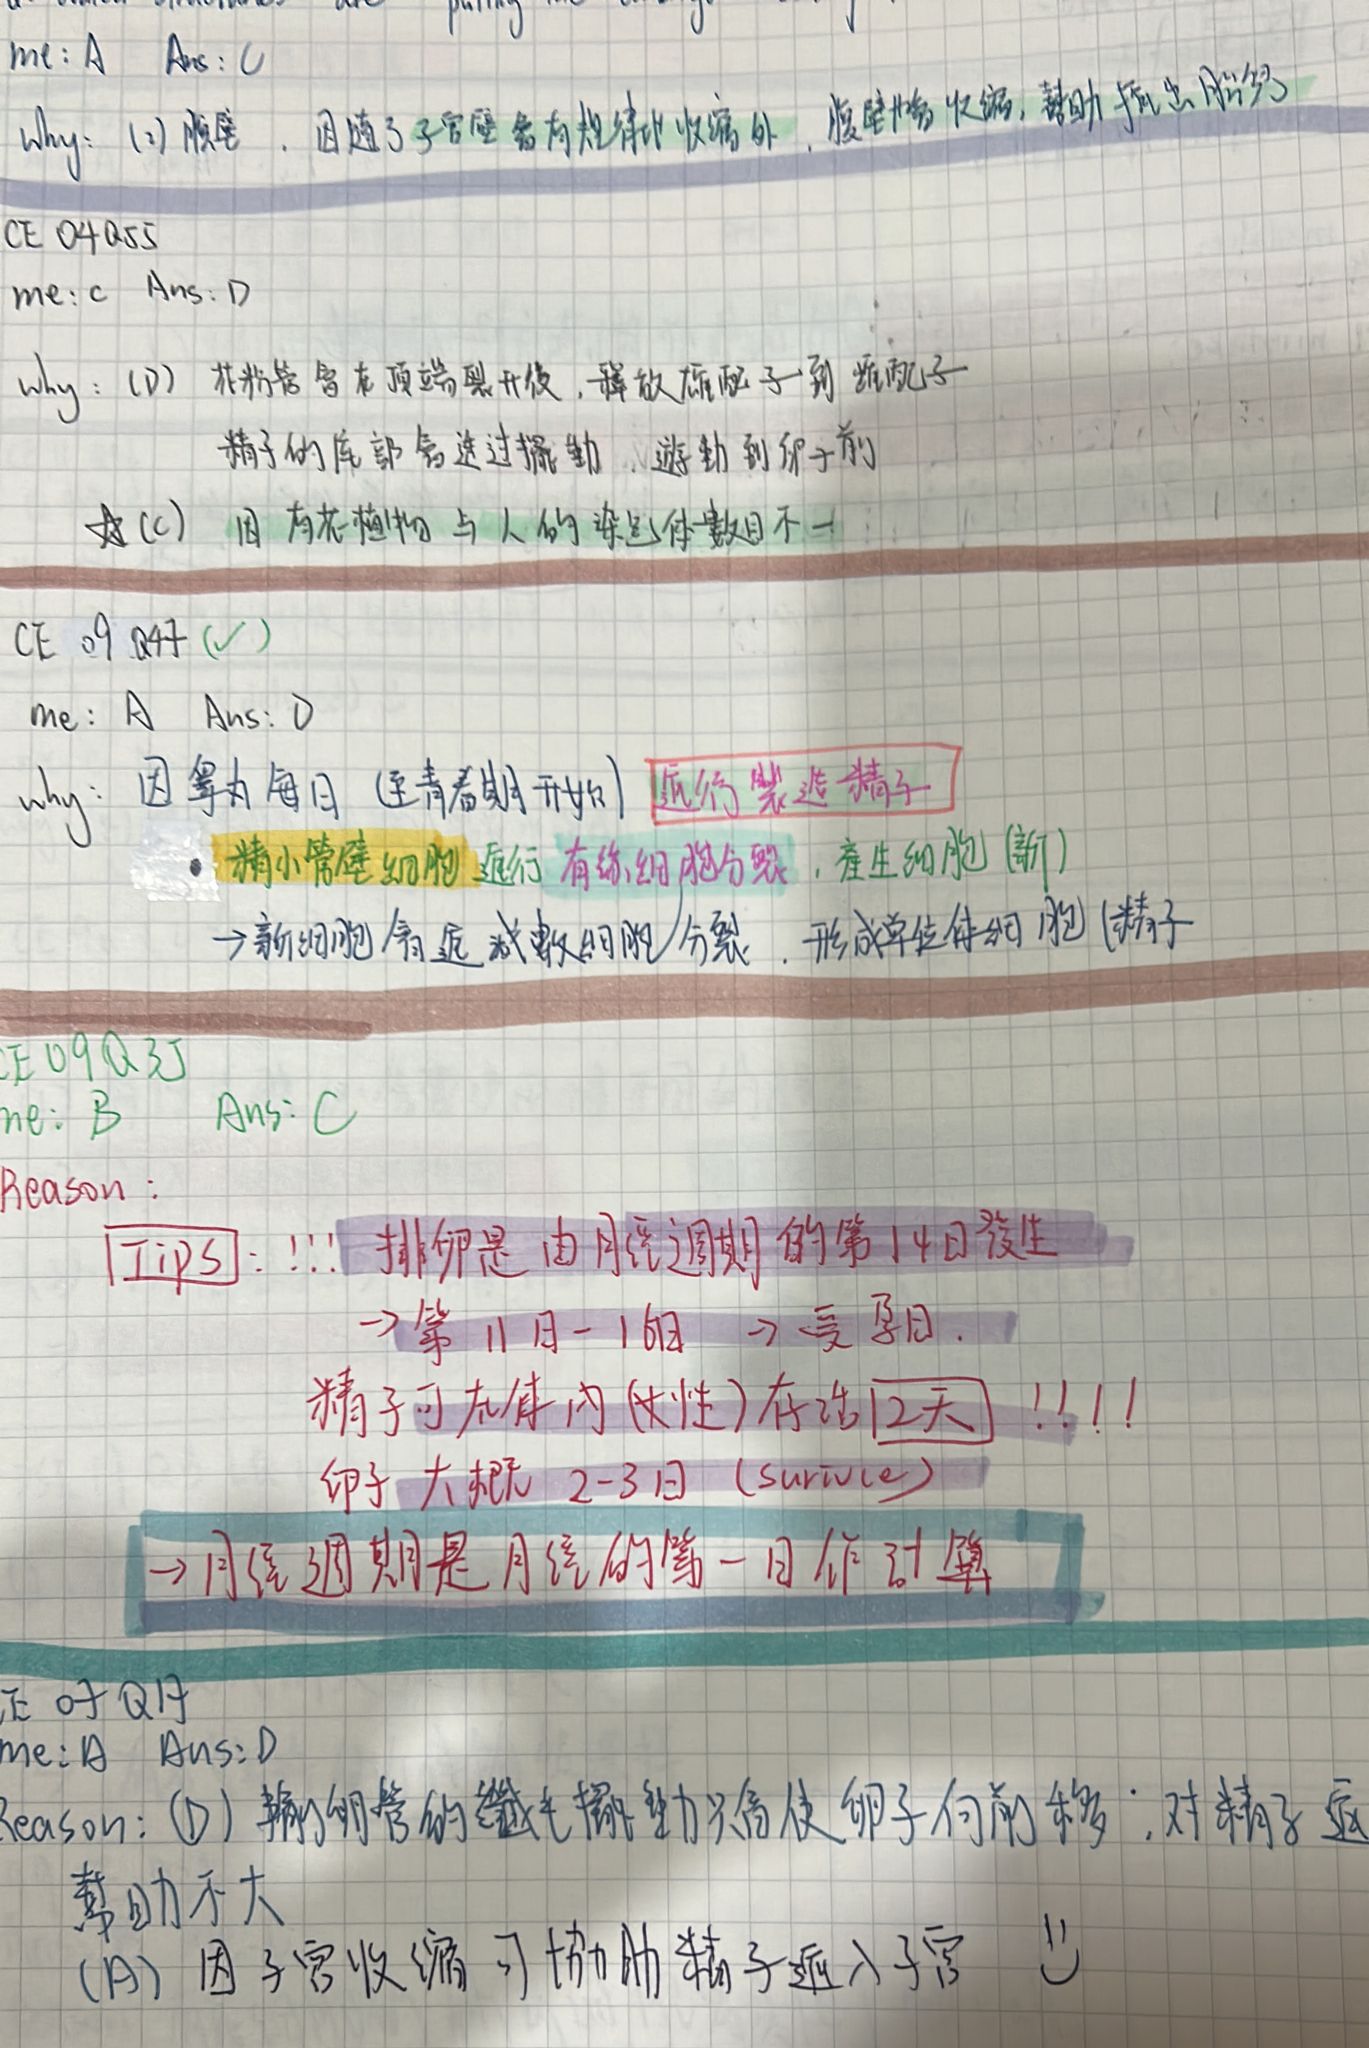 me: A Ans: C
why: (2) 腹壁，因隨了子宮壁會有規律的收縮外，腹壁也會收縮，幫助推出胎兒
CE 04 Q55
me: C Ans: D
why: (D) 花粉管會在頂端裂開後，釋放雄配子到雌配子
精子的尾部會透過擺動，遊動到卵子前
☆(C) 因有花植物与人的染色体數目不一
CE 09 Q47 (✓)
me: A Ans: D
why: 因睾丸每日 (至青春期開始) 進行製造精子
• 精小管壁細胞進行有絲細胞分裂，產生細胞 (新)
→新細胞會進減數細胞分裂，形成單位体細胞 (精子
CE 09 Q35
me: B Ans: C
Reason:
Tips: !!! 排卵是由月經週期的第14日發生
→第11日-16日 → 受孕日.
精子可在体內 (女性) 存活 2天 !!!!
卵子大概 2-3日 (surivce)
→月經週期是月經的第一日作計算
CE 07 Q17
me: A Ans: D
Reason: (D) 輸卵管的纖毛擺動只會使卵子向前移；对精子
幫助不大
(A) 因子宮收縮可協助精子進入子宮